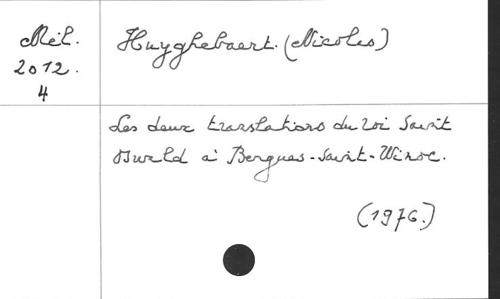 Mél.
2012.
4
Huyghebaert. (Nicolas)
Les deux translations du roi Saint
Oswald à Bergues-Saint-Winoc.
(1976.)